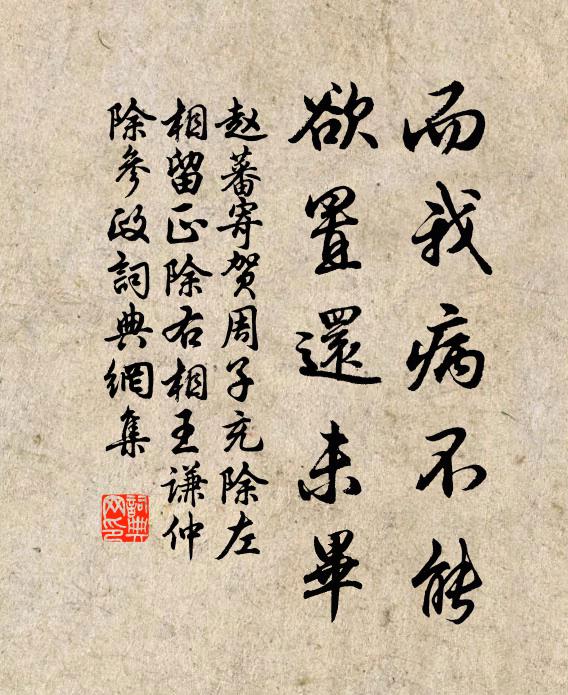 而我病不能
欲置還未畢
赵蕃寄贺周子充除左
相留正除右相王谦仲
除參政詞典網集
詞典
网印